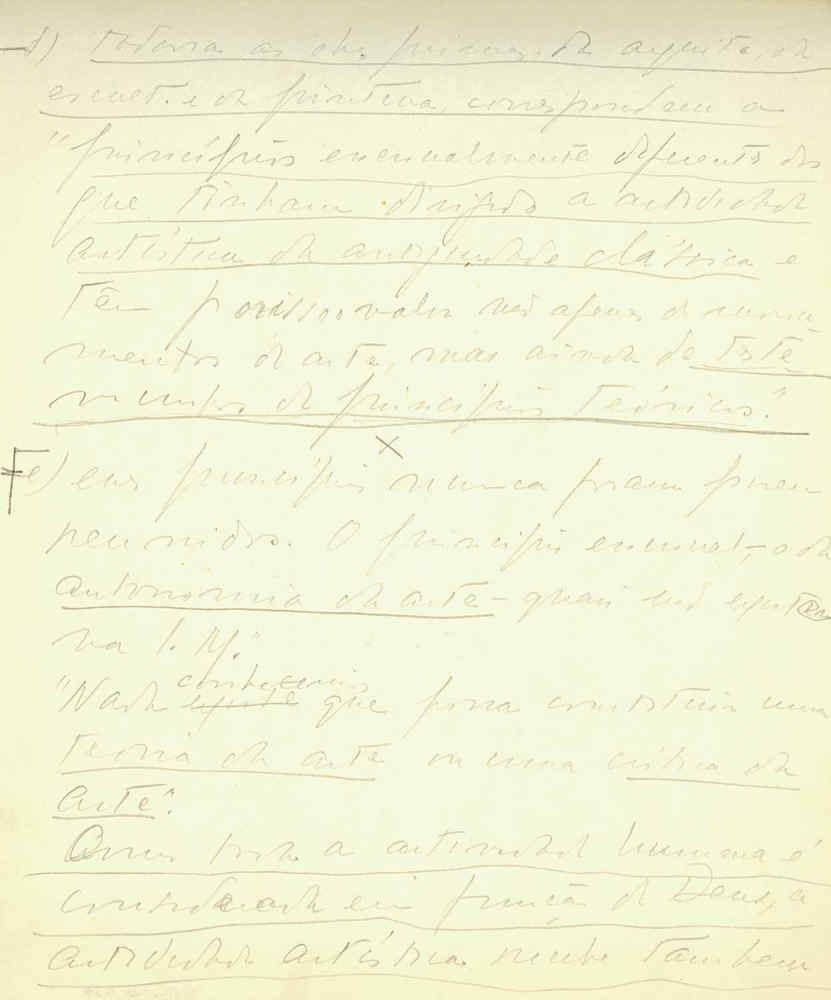 d) todavia as obras primas da arquite. da
escult. e da pintura, correspondem a
"princípios essencialmente diferentes dos
que tinham dirigido a actividade
artística da antiguidade clássica e
têm por isso o valor não apenas de monu-
mentos de arte, mas ainda de teste
munhos de princípios teóricos".
e) esses princípios nunca foram
reunidos. O princípio essencial, o da
autonomia da arte - quasi não
na I. M."
"Nada conhecemos que possa constituir uma
teoria da arte ou uma crítica da
arte".
Como toda a actividade humana é
considerada em função de Deus, a
actividade artística recebe também